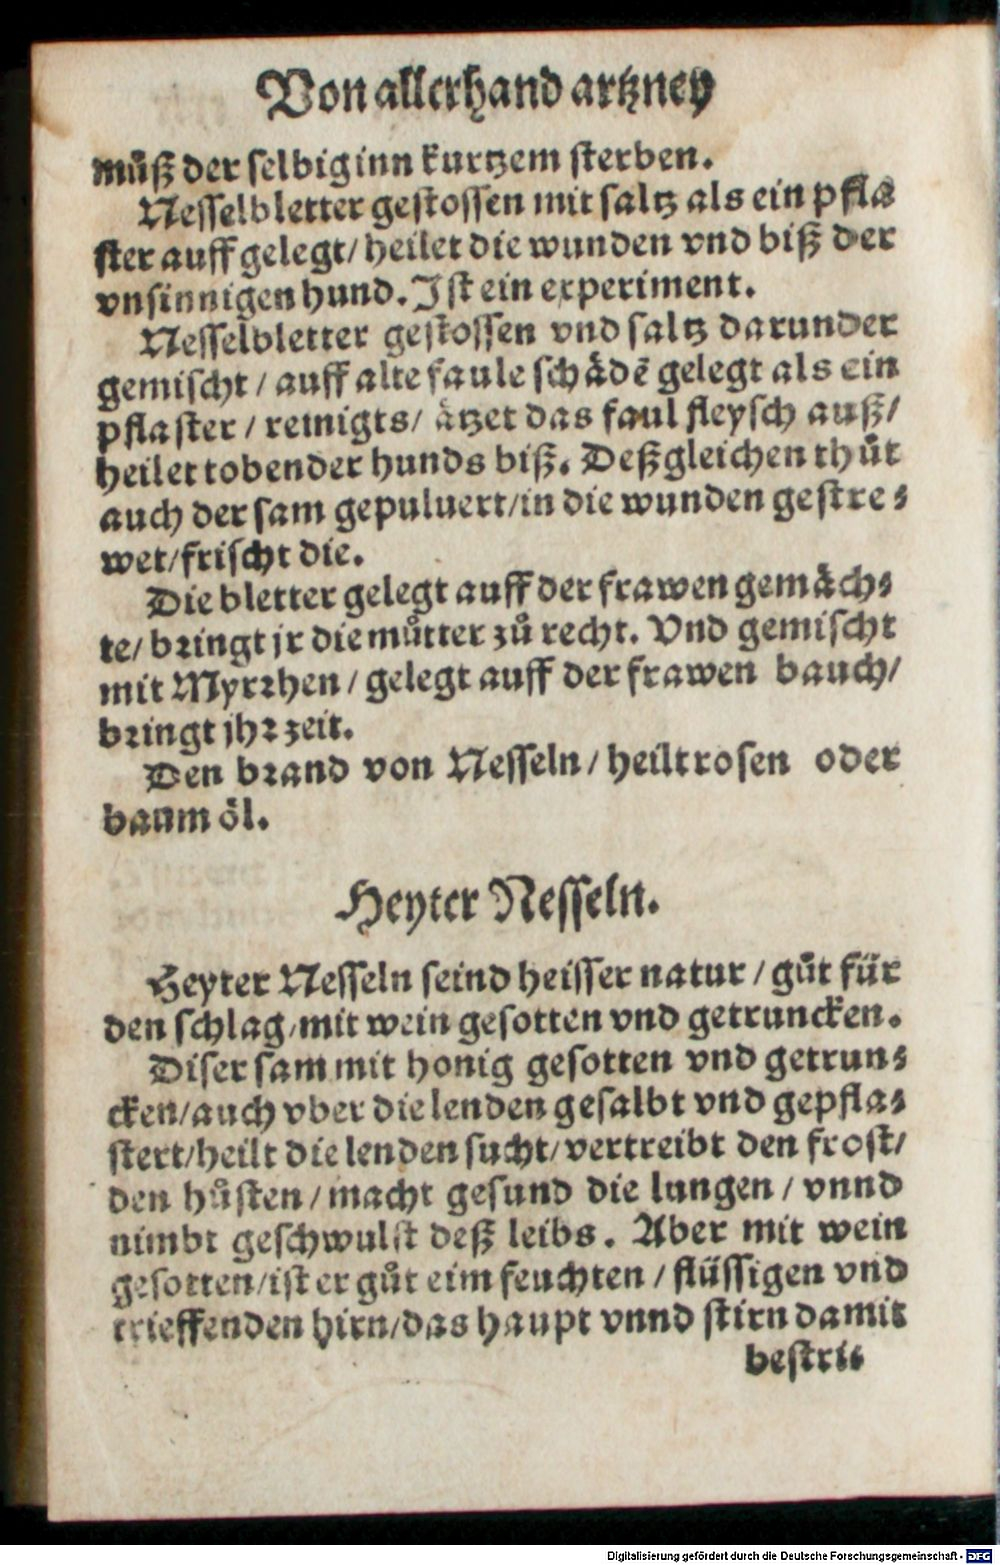 Von allerhand artzney
můß der selbig inn kurtzem sterben.
Nesselbletter gestossen mit saltz als ein pfla
ster auff gelegt/ heilet die wunden vnd biß der
vnsinnigen hund. Ist ein experiment.
Nesselbletter gestossen vnd saltz darunder
gemischt / auff alte faule schådẽ gelegt als ein
pflaster / reinigts/ åtzet das faul fleysch auß/
heilet tobender hunds biß. Deßgleichen thůt
auch der sam gepuluert/in die wunden gestre⸗
wet/frischt die.
Die bletter gelegt auff der frawen gemåch⸗
te/ bringt jr die můtter zů recht. Vnd gemischt
mit Myrrhen / gelegt auff der frawen bauch/
bringt jhr zeit.
Den brand von Nesseln / heilt rosen oder
baum öl.
Heyter Nesseln.
Heyter Nesseln seind heisser natur / gůt für
den schlag/mit wein gesotten vnd getruncken.
Diser sam mit honig gesotten vnd getrun⸗
cken/auch vber die lenden gesalbt vnd gepfla⸗
stert/heilt die lenden sucht/vertreibt den frost/
den hůsten / macht gesund die lungen / vnnd
nimbt geschwulst deß leibs. Aber mit wein
gesotten/ist er gůt eim feuchten / flüssigen vnd
trieffenden hirn/das haupt vnnd stirn damit
bestri⸗
Digitalisierung gefördert durch die Deutsche Forschungsgemeinschaft - DFG